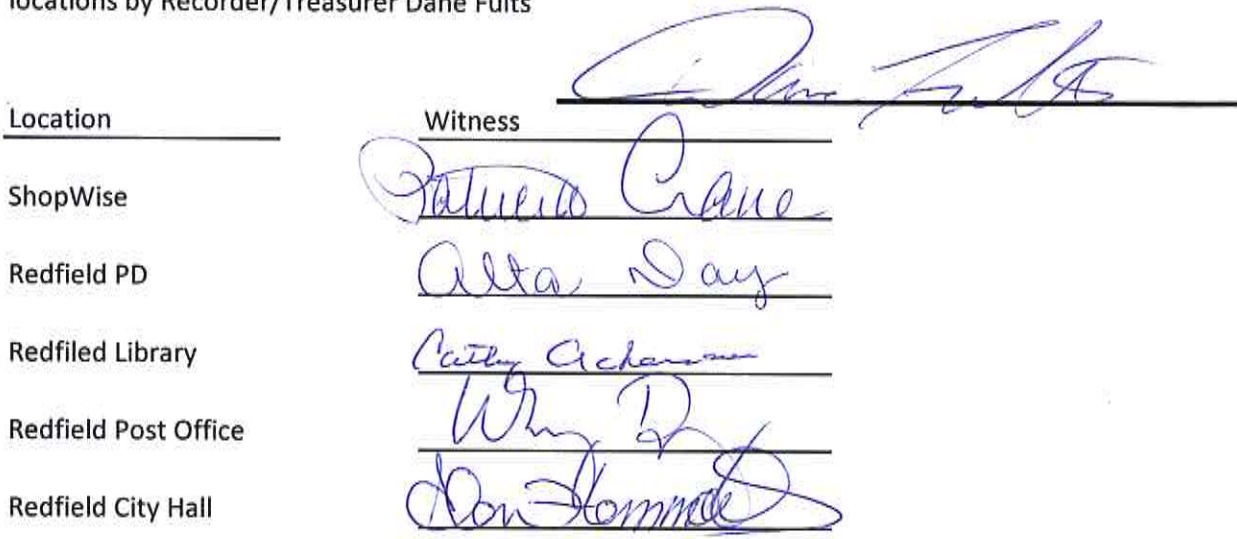 locations by Recorder/Treasurer Dane Fults
Dane Fults
Location Witness
ShopWise Crane
Redfield PD Alta Day
Redfiled Library Cathy
Redfield Post Office
Redfield City Hall Don